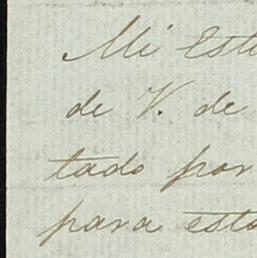 Mi Est
de V. de
tado por
para esta